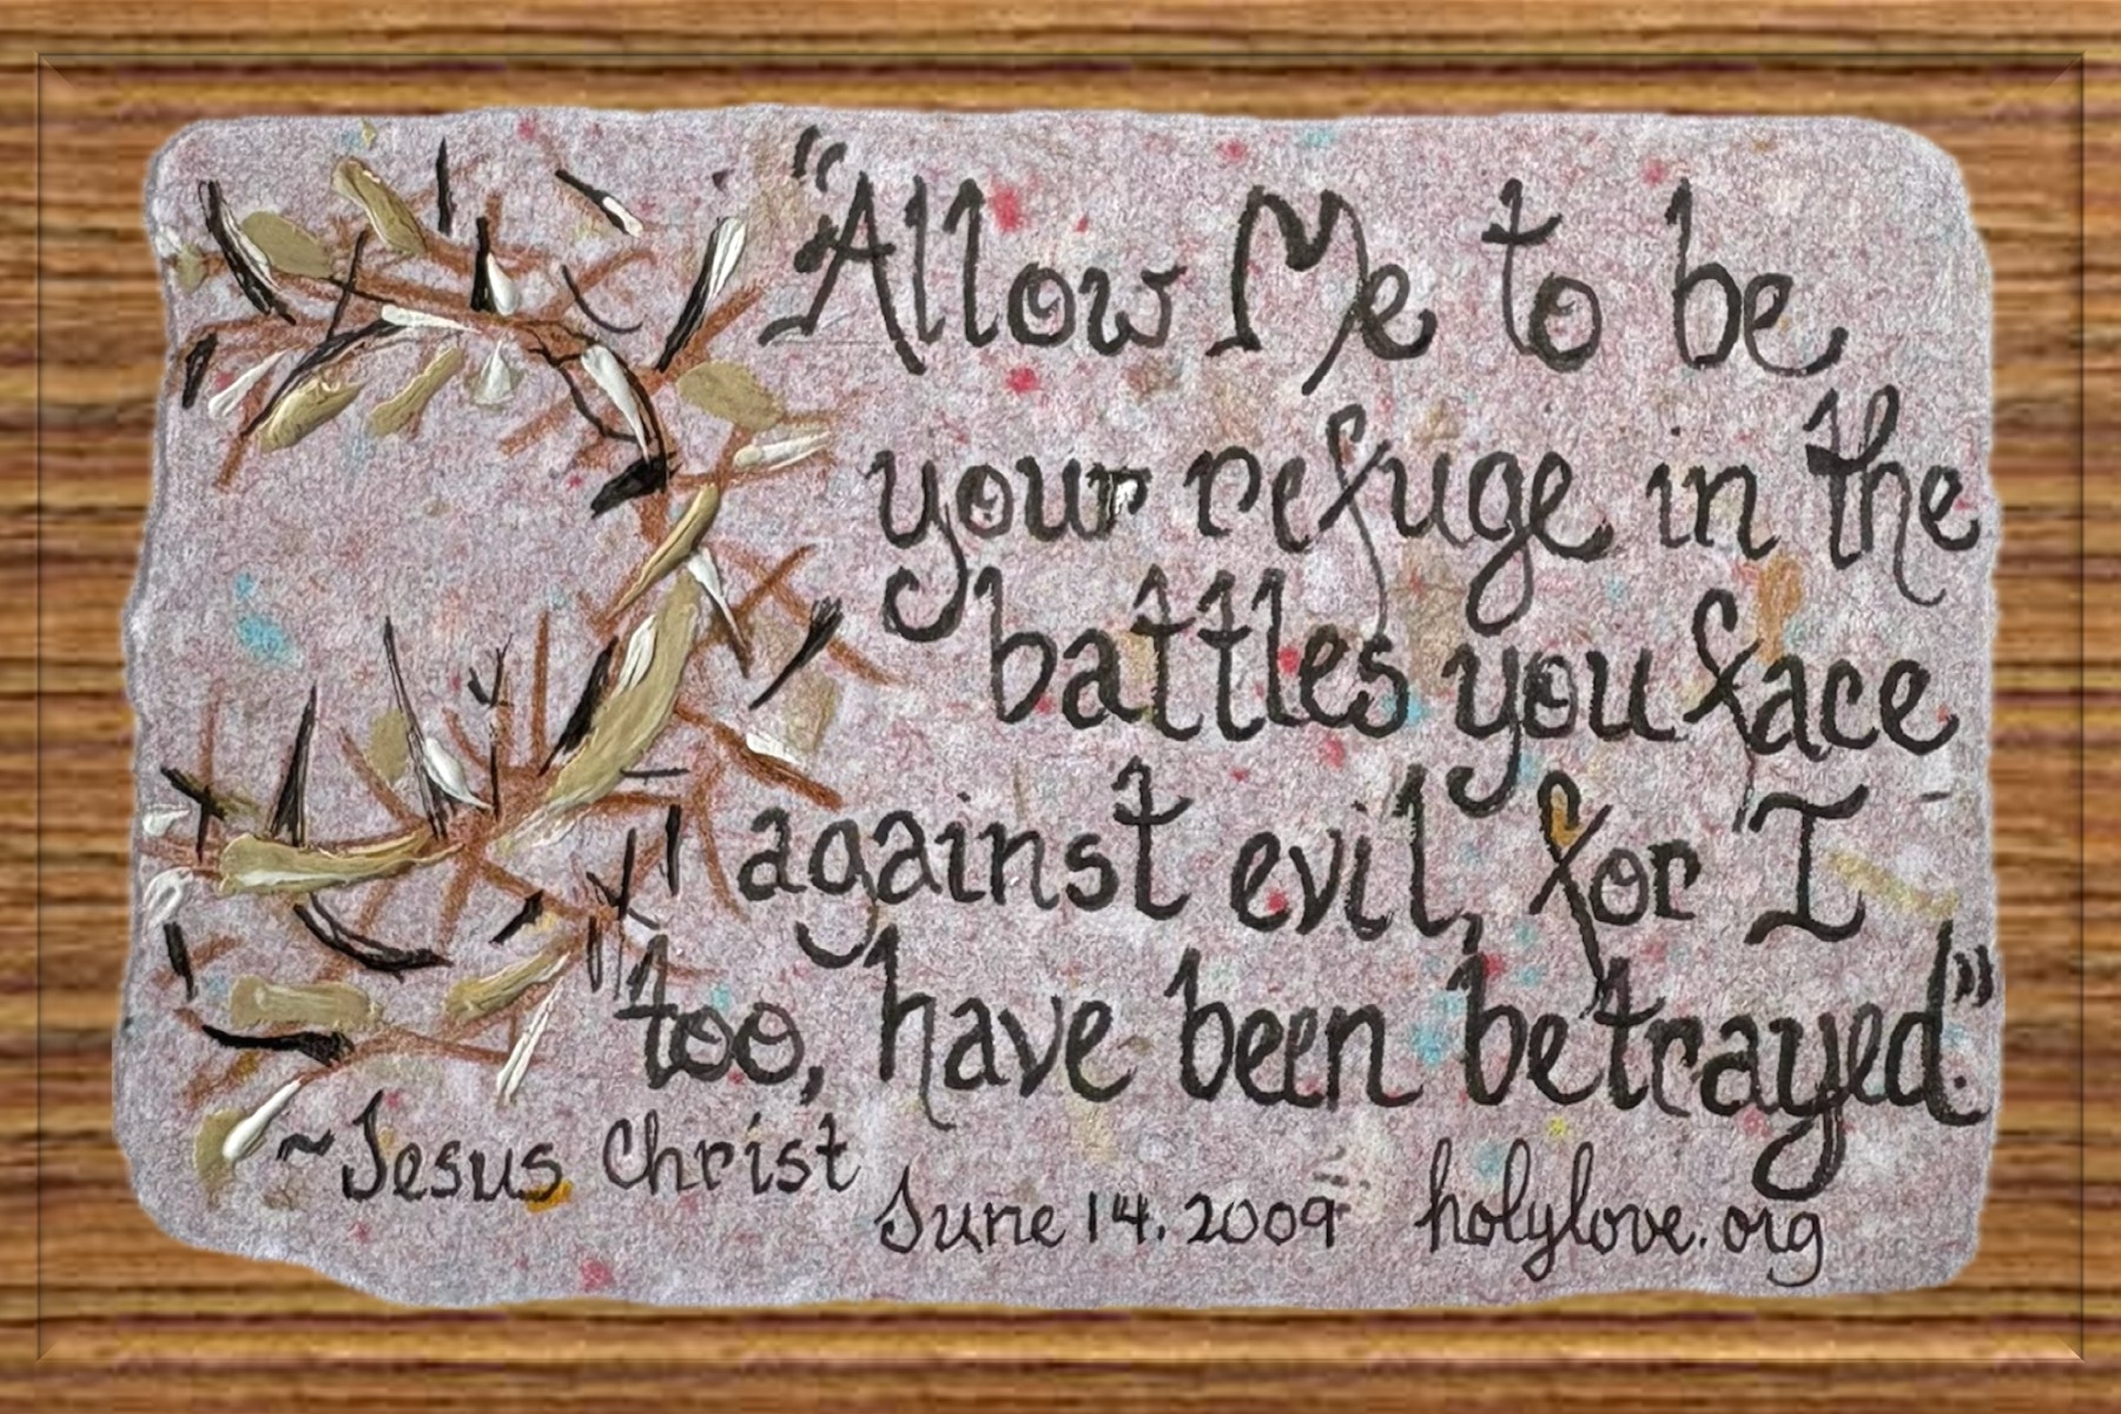 "Allow Me to be
your refuge in the
battles you face
against evil, for I
too, have been betrayed."
~Jesus Christ
June 14, 2009 holylove.org